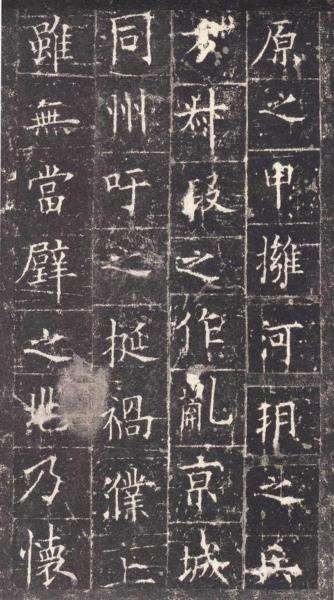 原之甲擁河朔之兵
方叔段之作亂京城
同州吁之挺禍濮上
雖無當璧之兆乃懷